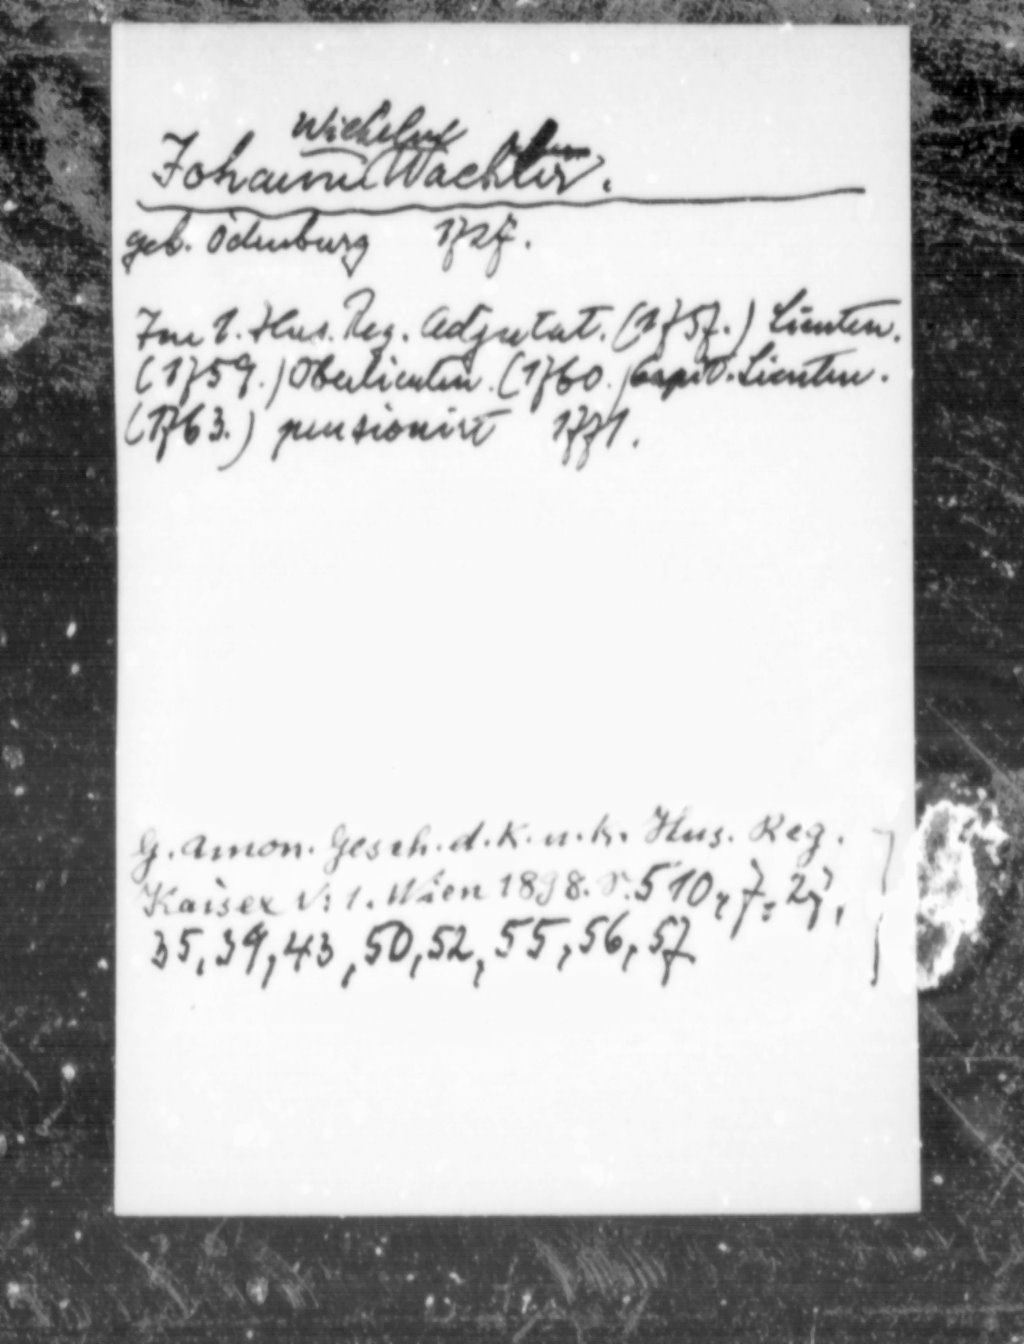 Wilhelm
Johann Wachtler.
geb. Ödenburg 1727.
Im 1. Hus. Reg. Adjutat. (1757.) Lieuten.
(1759.) Oberlieuten. (1760.) Capit. Lieuten.
(1763.) pensionirt 1771.
G. Amon. Gesch. d. k. u. k. Hus. Reg.
Kaiser N: 1. Wien 1898. S. 510, 7: 27,
35, 39, 43, 50, 52, 55, 56, 57